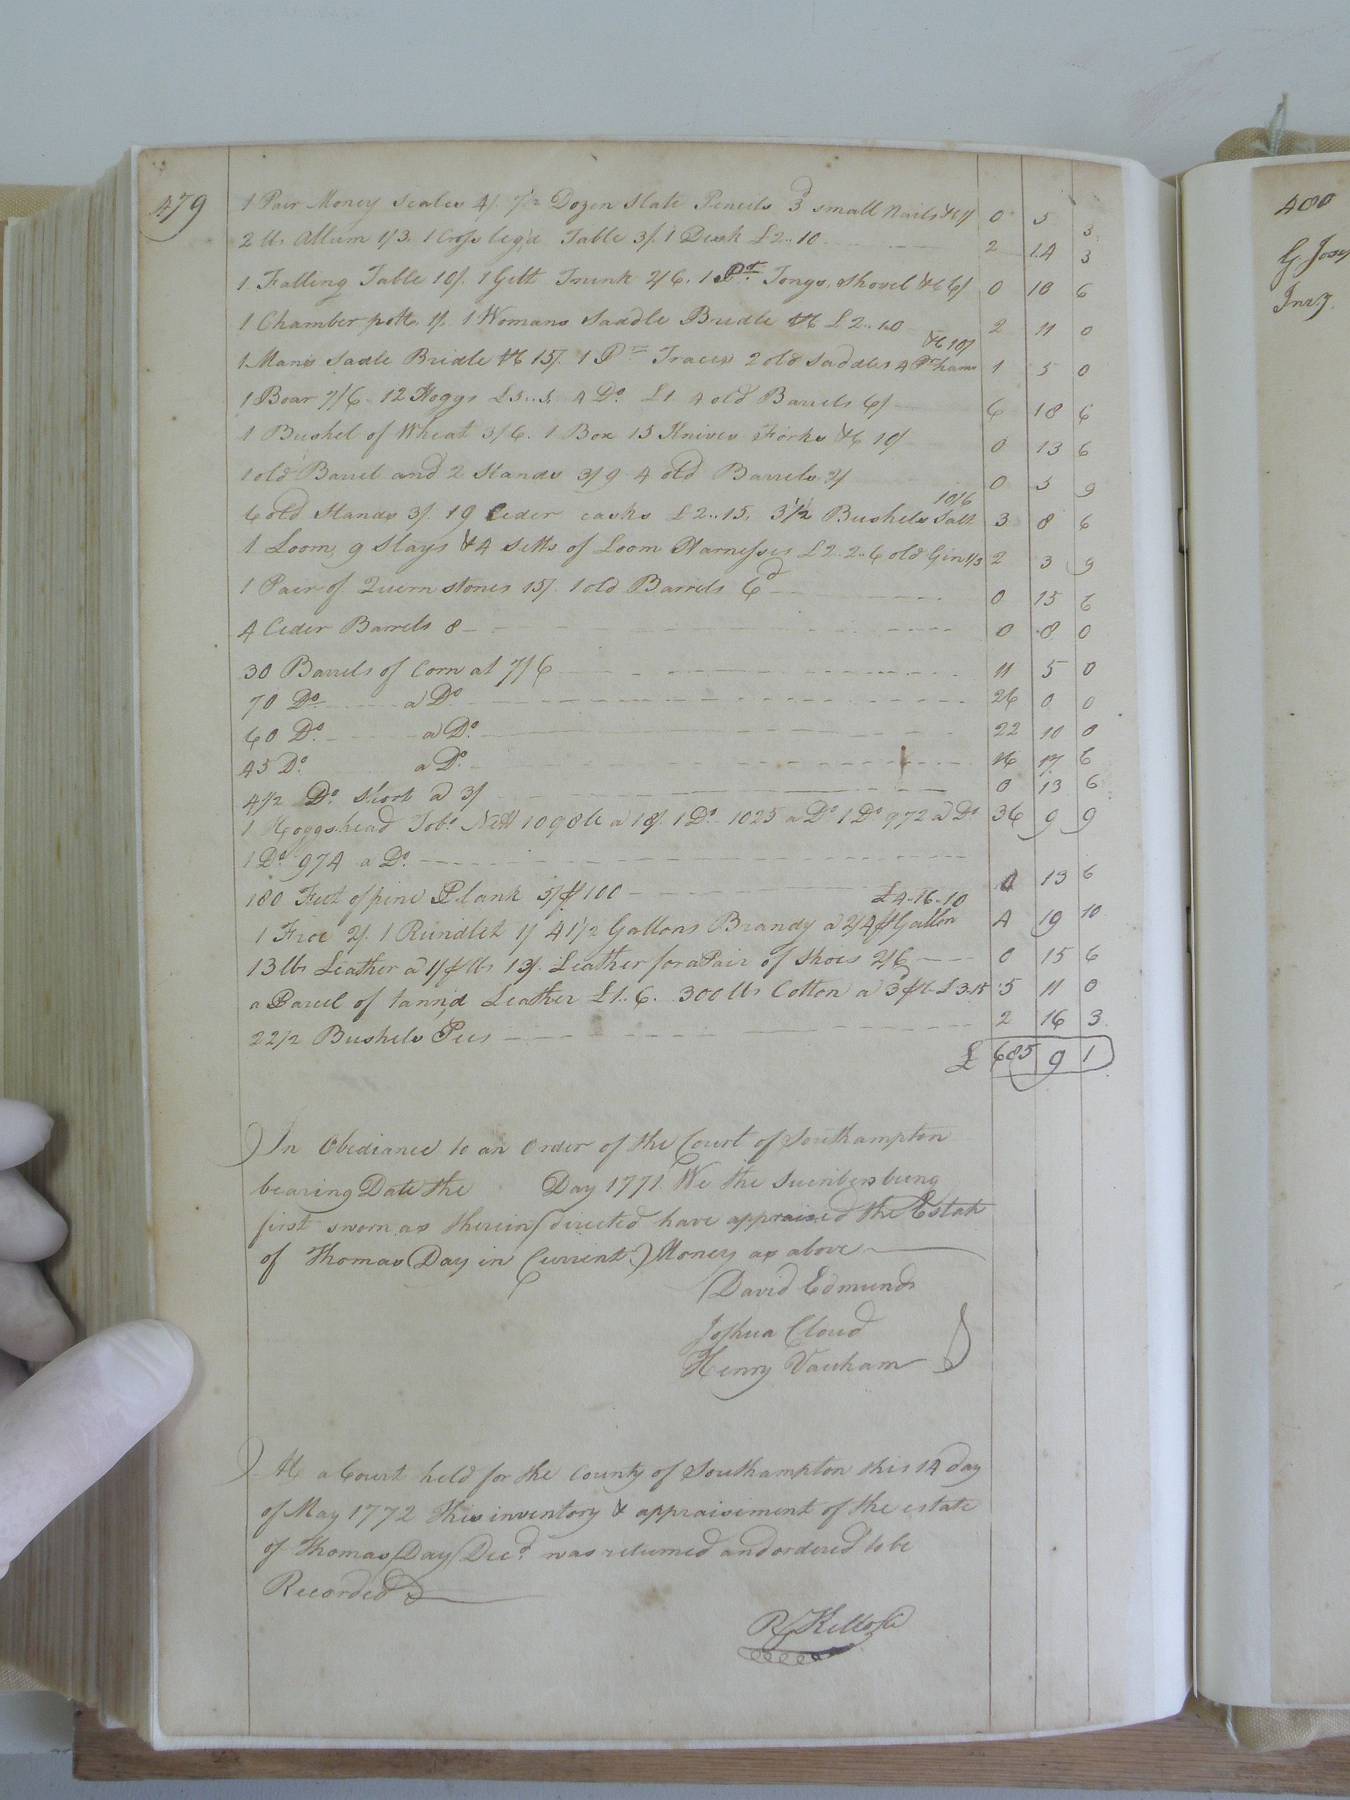 479
1 Pair Money Scales 4/. 7/2 Dozen Slate Pencils 3d small Nails &c 1/ 0 5 3
2 lb Allum 1/3. 1 Cross leg'd Table 3/. 1 Desk £2..10 2 14 3
1 Falling Table 10/. 1 Gilt Trunk 2/6. 1 Pr. Tongs, Shovel &c 6/ 0 18 6
1 Chamber pott, 1/. 1 Womans Saddle Bridle &c £2..10 2 11 0
&c 10/
1 Mans Sadle Bridle &c 15/. 1 Pr Traces 2 old Saddles 4 Pr hams 1 5 0
1 Boar 7/6. 12 Hoggs £5..5, 4 Do. £1 4 old Barrels 6/ 6 18 6
1 Bushel of Wheat 3/6. 1 Box 15 Knives Forks &c 10/ 0 13 6
1 old Barrel and 2 Stands 3/9 4 old Barrels 2/ 0 5 9
10/6
6 old Stands 3/. 19 Ceder casks £2..15, 3 1/2 Bushels Salt 3 8 6
1 Loom, 9 Slays & 4 Setts of Loom Harnesses £2..2..6 old Gin 1/3 2 3 9
1 Pair of Quern stones 15/. 1 old Barrels 6d 0 15 6
4 Ceder Barrels 8 0 8 0
30 Barrels of Corn at 7/6 11 5 0
70 Do a Do 26 0 0
60 Do. a Do. 22 10 0
45 Do. a Do. 16 17 6
4 1/2 Do. Short a 3/ 0 13 6
1 Hoggshead Tobo. Nett 1098 lb a 18/. 1 Do. 1025 a Do 1 Do 972 a Do 36 9 9
1 Do. 974 a Do.
180 Feet of pine Plank 5/ ⅌ 100 0 13 6
£4-16-10
1 Froe 2/. 1 Rundlet 1/ 41 1/2 Gallons Brandy a 2/4 ⅌ Gallon 4 19 10
13 lbs Leather a 1/ ⅌ lb 13/. Leather for a Pair of Shoes 2/6 0 15 6
a Parcel of tann'd Leather £1..6. 300 lbs Cotton a 3d ⅌ lb £3.15 5 11 0
22 1/2 Bushels Pees 2 16 3
£ 685 9 1
In Obediance to an Order of the Court of Southampton
bearing Date the Day 1771 We the Sucribers being
first sworn as therein directed have appraised the Estate
of Thomas Day in Current Money as above
David Edmunds
Joshua Cloud
Henry Vauham
At a Court held for the County of Southampton this 14 day
of May 1772 This inventory & appraisiment of the estate
of Thomas Day Decd. was returned and ordered to be
Recorded
R Kello Ck
480
G. Jos
Invy.